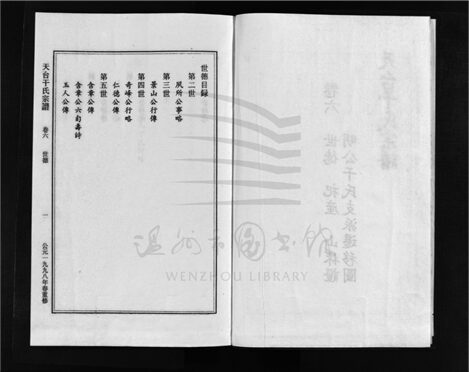 世德目録
第二世
夙所公事略
第三世
景山公行傳
第四世
奇峰公行略
仁德公傳
第五世
含章公傳
含章公六旬壽詩
玉人公傳
天台干氏宗譜
卷六
世德
一
公元一九九八年春重修
卷六
世德
祀産
明公干氏支派遷移圖
温州市圖書館
WENZHOU LIBRARY